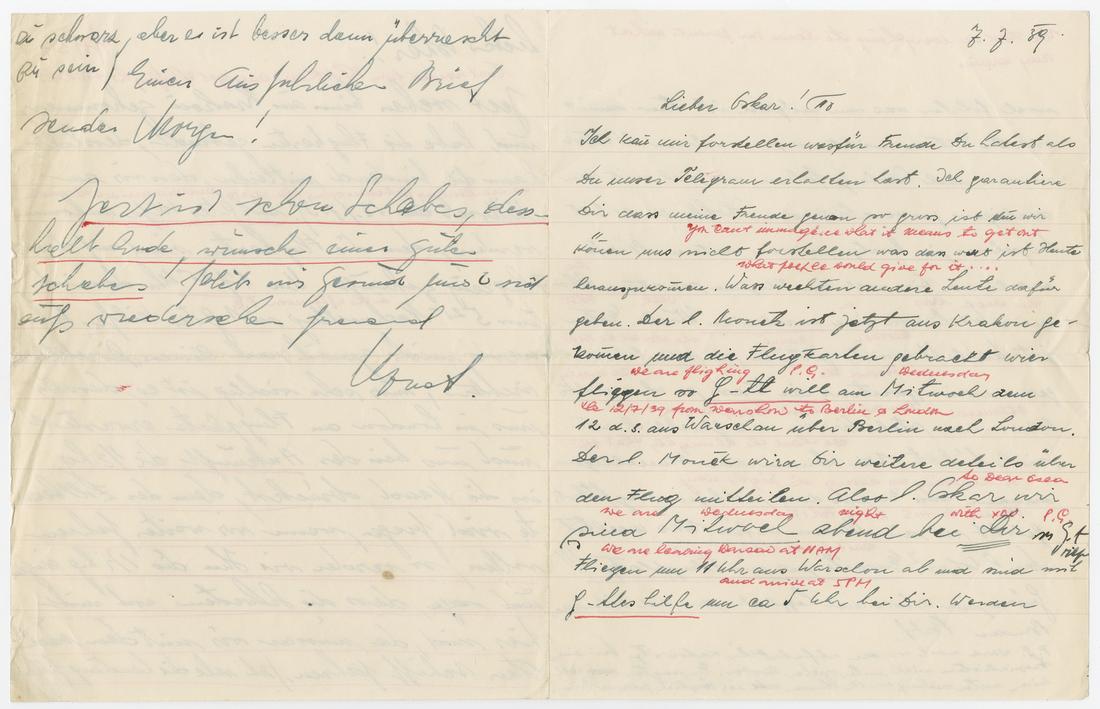 zu schwarz, aber es ist besser dann überrascht
zu sein) Einen Ausführlichen Brief
sende Morgen!
Jetzt ist schon Schabes, dess-
halb Ende, wünsche einen guten
schabes bleib mir Gesund und
aufs wiedersehen freuend
7. 7. 39.
Lieber Oskar!
Ich kan mir forstellen wasfür Freude Du hatest als
Du unser Telegram erhalten hast. Ich garantiere
Dir dass meine Freude genau so gross ist den wir
you cant immagene what it means to get out
könen uns nicht forstellen was das wert ist Heute
what people would give for it....
herauszukomen. Was mechten andere Leute dafür
geben. Der l. Moniek ist jetzt aus Krakau ge-
komen und die Flugkarten gebracht wier
we are flighing P.G. Wednesday
fliegen so G-tt will am Mitwoch dem
the 12/7/39 from Warshow to Berlin & London
12 d. s. aus Warschau über Berlin nach London.
Der l. Moniek wird Dir weitere deteils über
so Dear Oscar
den Flug mitteilen. Also l. Oskar wir
we are Wednesday night with you P.G.
sind Mitwoch abend bei Dir so G-t will
we are leaving Warsaw at 11AM
Fliegen um 11 Uhr aus Warschau ab und sind mit
and arrive at 5PM
G-ttes hilfe um ca 5 Uhr bei Dir. Werden